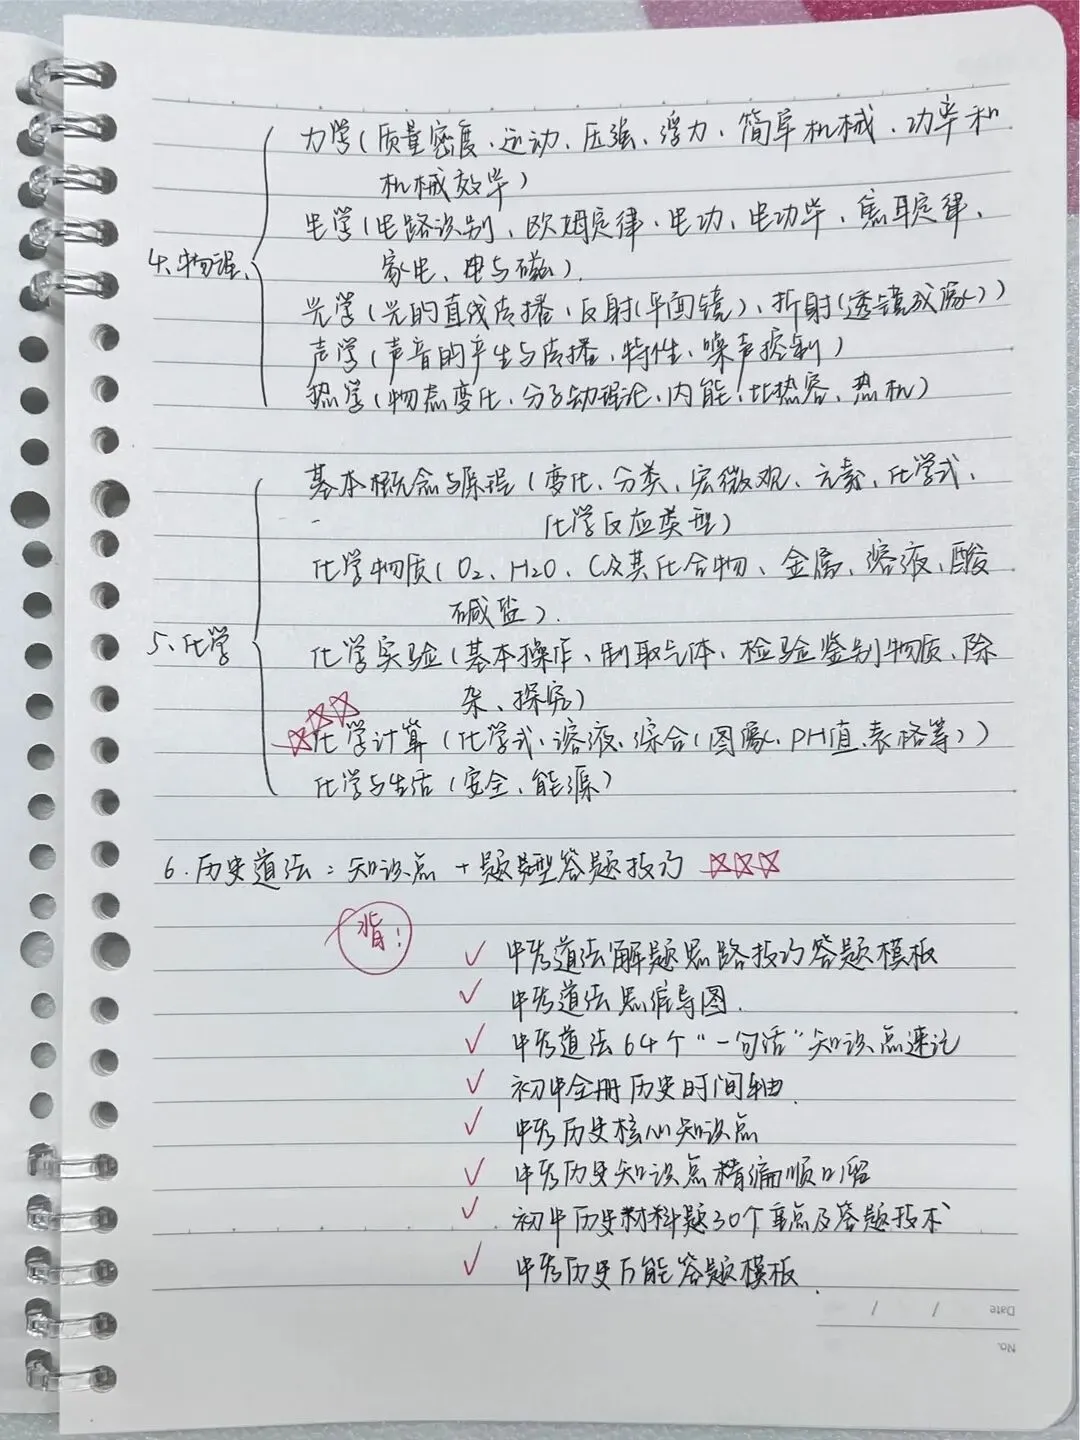 力学(质量密度、运动、压强、浮力、简单机械、功率和
机械效率)
电学(电路识别、欧姆定律、电功、电功率、焦耳定律、
家电、电与磁).
4、物理、
光学(光的直线传播、反射(平面镜)、折射(透镜成像))
声学(声音的产生与传播、特性、噪声控制)
热学(物态变化、分子动理论、内能、比热容、热机)
基本概念与原理(变化、分类、宏微观、元素、化学式、
化学反应类型)
化学物质(O2、H2O、C及其化合物、金属、溶液、酸
碱盐).
5、化学
化学实验(基本操作、制取气体、检验鉴别物质、除
杂、探究)
化学计算(化学式、溶液、综合(图像、PH值、表格等))
化学与生活(安全、能源)
6.历史道法:知识点+题型答题技巧
背!
✓ 中考道法解题思路技巧答题模板
✓ 中考道法思维导图.
✓ 中考道法64个“一句话”知识点速记
✓ 初中全册历史时间轴.
✓ 中考历史核心知识点
✓ 中考历史知识点精编顺口溜
✓ 初中历史材料题30个重点及答题技术
✓ 中考历史万能答题模板.
Date / /
No.